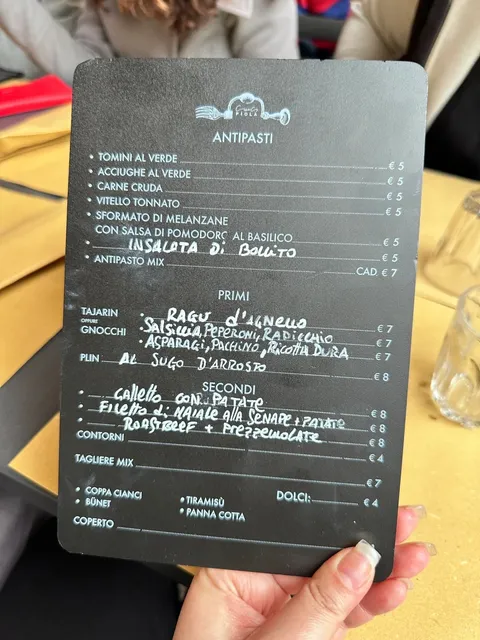 PIOLA
ANTIPASTI
• TOMINI AL VERDE € 5
• ACCIUGHE AL VERDE € 5
• CARNE CRUDA € 5
• VITELLO TONNATO € 5
• SFORMATO DI MELANZANE
CON SALSA DI POMODORO AL BASILICO € 5
• INSALATA DI BOLLITO € 5
• ANTIPASTO MIX CAD € 7
PRIMI
TAJARIN • RAGU D'AGNELLO
OPPURE
GNOCCHI • SALSICCIA, PEPERONI, RADICCHIO € 7
• ASPARAGI, PACHINO, RICOTTA DURA € 7
PLIN AL SUGO D'ARROSTO € 8
SECONDI
• GALLETTO CON PATATE € 8
• FILETTO DI MAIALE ALLA SENAPE + PATATE € 8
• ROASTBEEF + PREZZEMOLATE € 8
CONTORNI € 4
TAGLIERE MIX € 7
DOLCI: € 4
• COPPA CIANCI • TIRAMISÙ
• BÜNET • PANNA COTTA
COPERTO